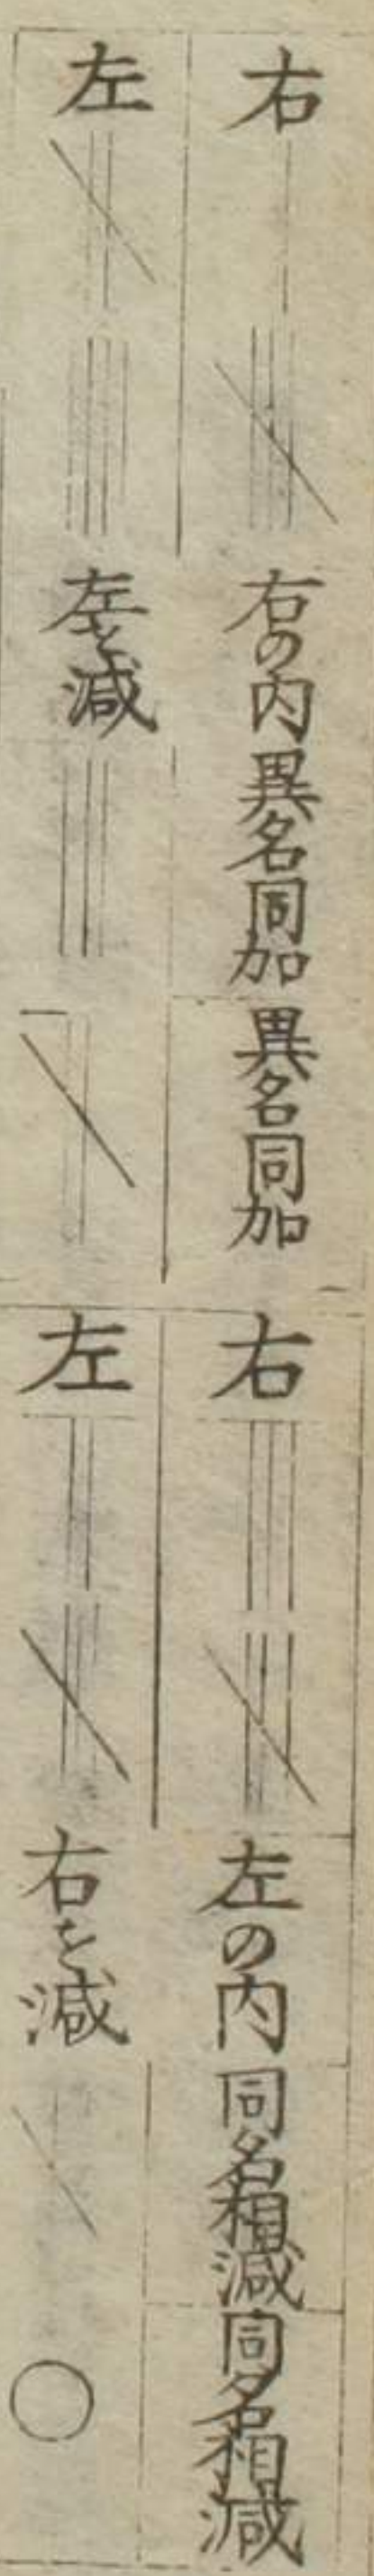 右
右の内 異名同加 異名同加
左
左を減
右
左の内 同名相減 同名相減
左
右を減 ○